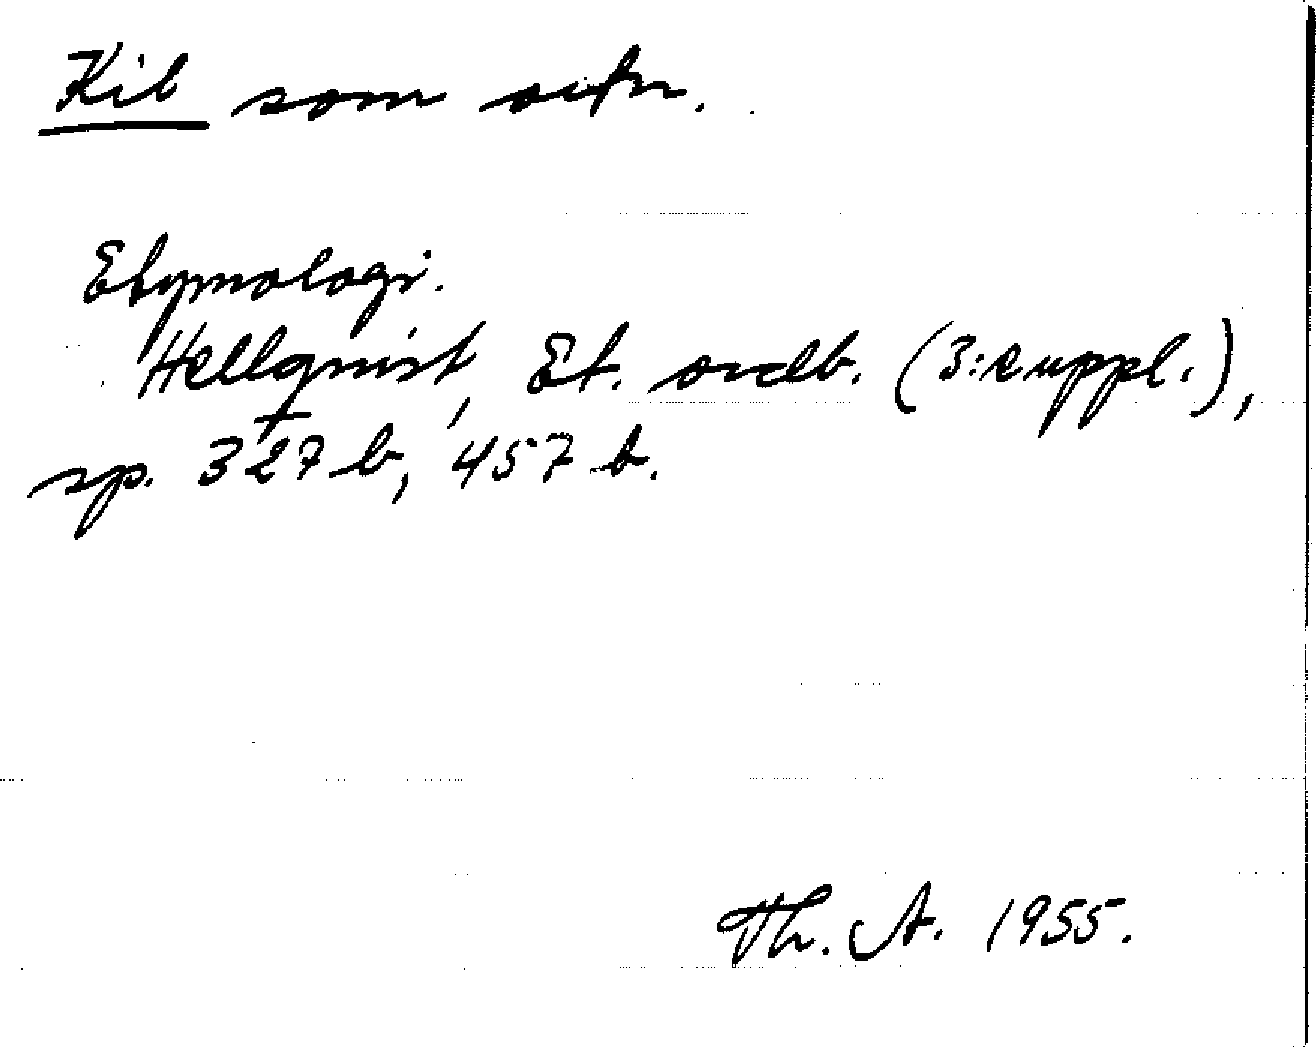 Kil som ortn.
Etymologi.
Hellquist, Et. ordb. (3:e uppl.),
sp. 327 b, 457 b.
Th. A. 1955.